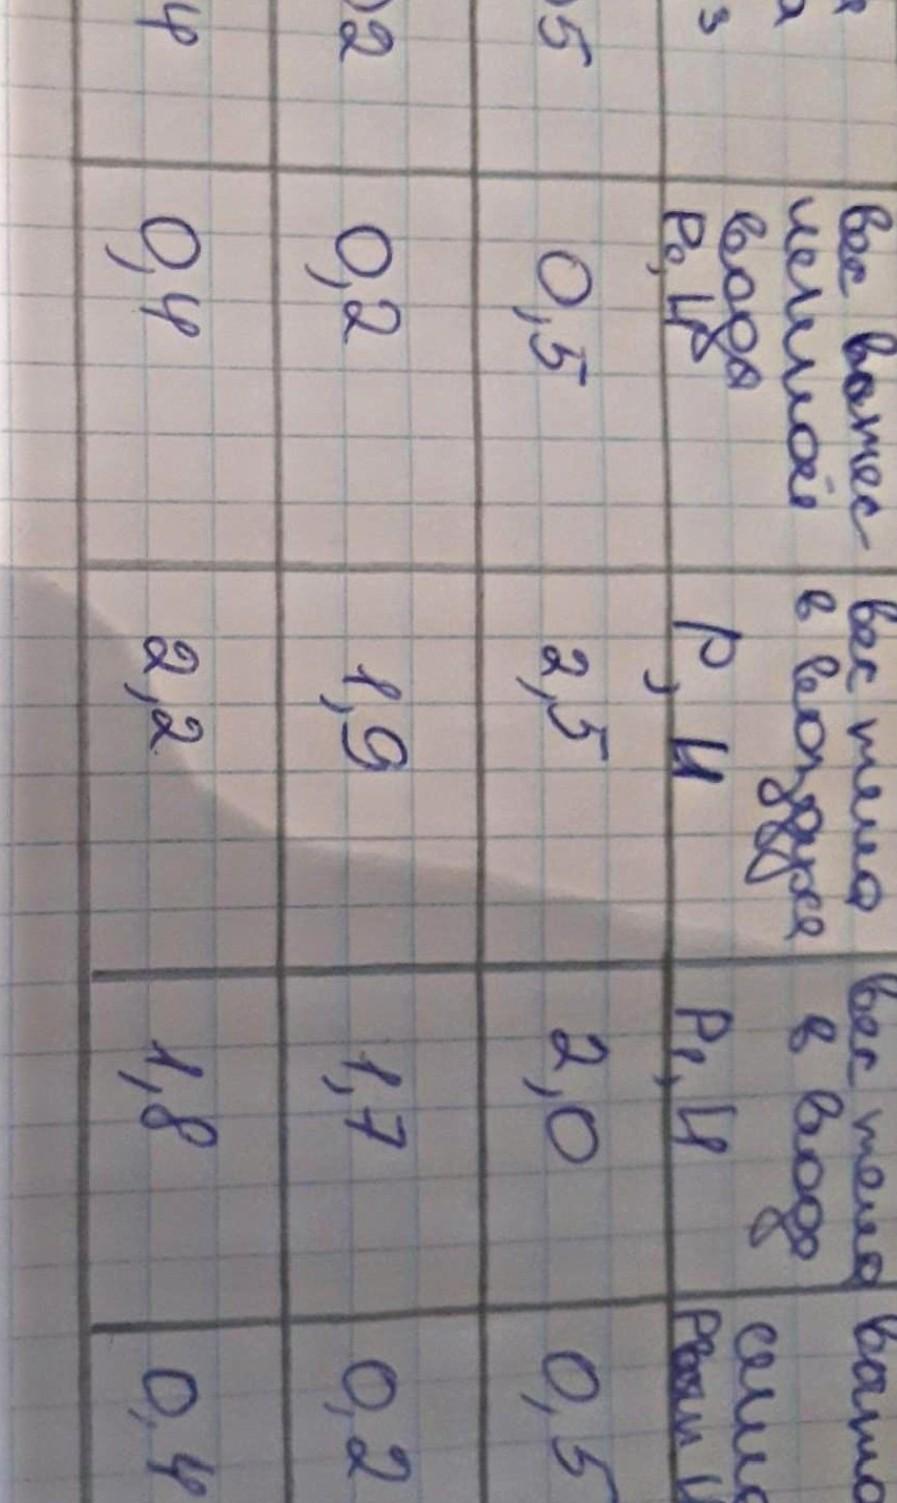 вес вытес- вес тела вес тела
ненной в воздухе в воде
воды сила
P₀, Н P, Н P₁, Н
5 0,5 2,5 2,0 0,5
2 0,2 1,9 1,7 0,2
4 0,4 2,2 1,8 0,4